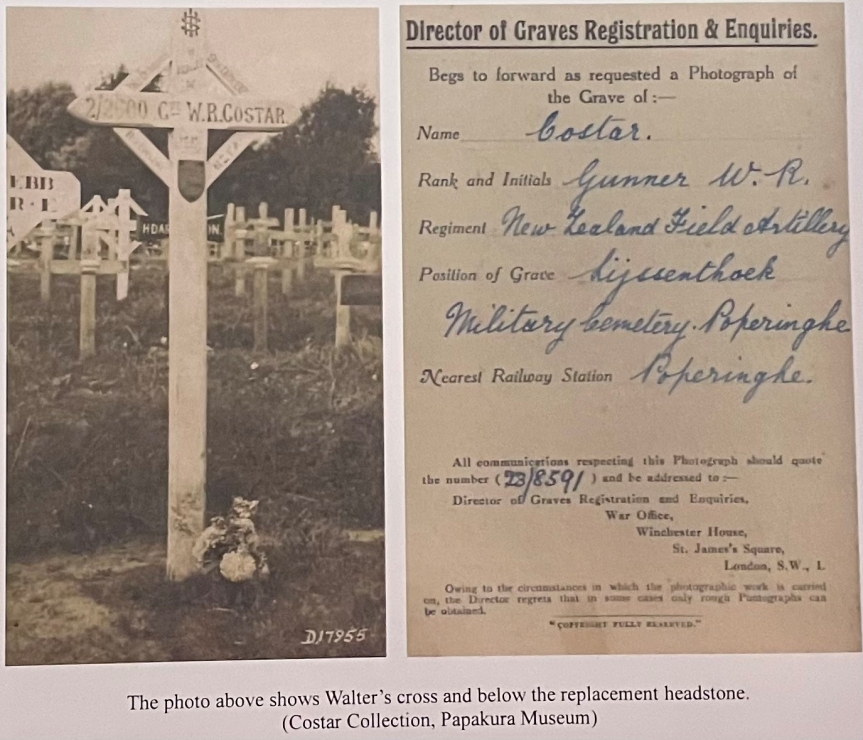 C. W.R.COSTAR.
EBB
R.E
D17955
Director of Graves Registration & Enquiries.
Begs to forward as requested a Photograph of
the Grave of :—
Name Costar.
Rank and Initials Gunner W. R.
Regiment New Zealand Field Artillery
Position of Grave Lijssenthoek
Military Cemetery. Poperinghe
Nearest Railway Station Poperinghe.
All communications respecting this Photograph should quote
the number (23/8591) and be addressed to :—
Director of Graves Registration and Enquiries,
War Office,
Winchester House,
St. James's Square,
London, S.W., 1.
Owing to the circumstances in which the photographic work is carried
on, the Director regrets that in some cases only rough Photographs can
be obtained.
"COPYRIGHT FULLY RESERVED."
The photo above shows Walter's cross and below the replacement headstone.
(Costar Collection, Papakura Museum)